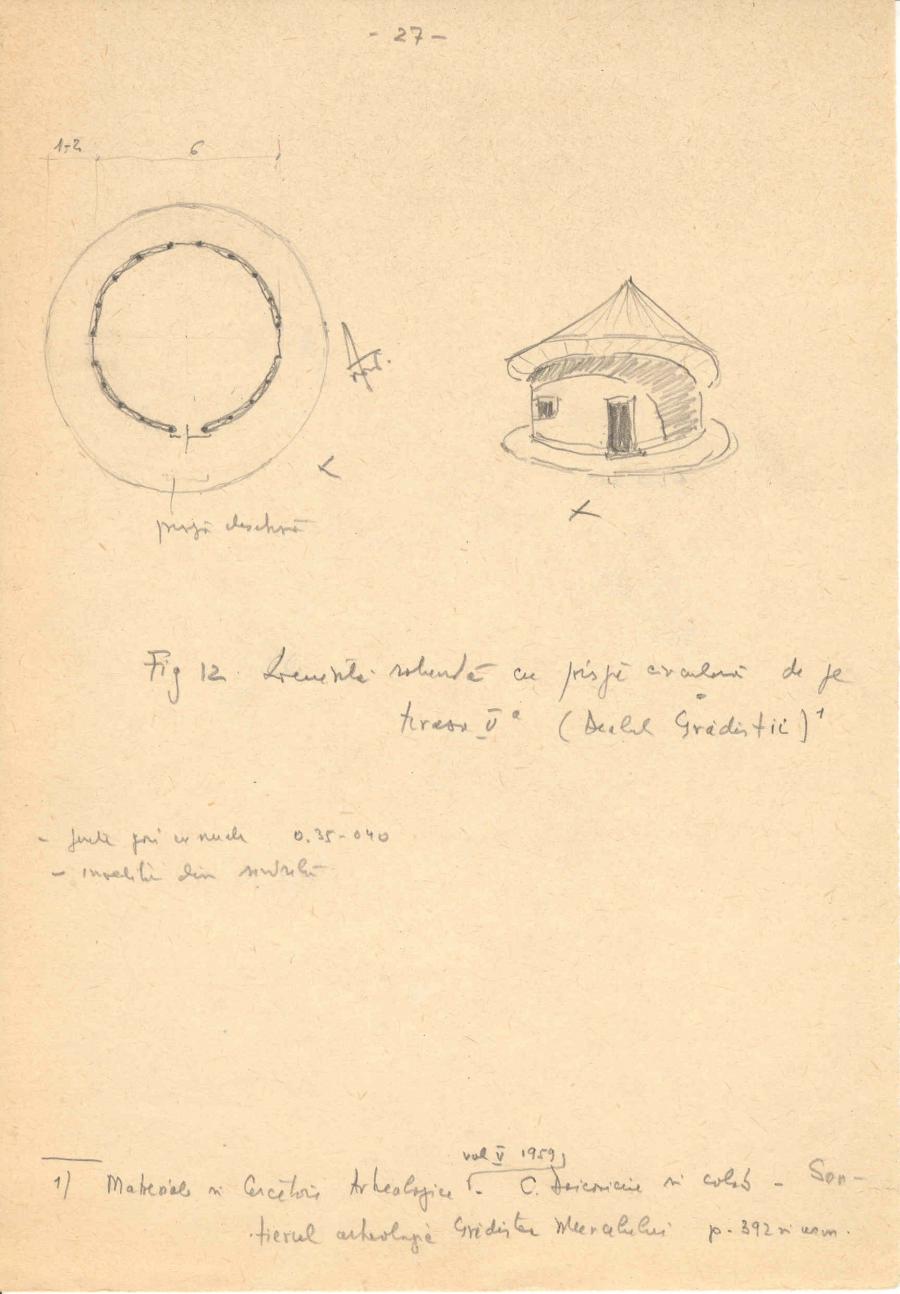 - 27 -
1-2 6
prispă deschisă
Fig 12. Locuință rotundă cu prispă circulară de pe
terasa V a (Dealul Grădiștii) 1
0.35-040
- învelită din șindrilă
vol V 1959,
1) Materiale si Cercetări Arheologice - C. Daicoviciu si colab - San-
tierul arheologic Grădiștea Muncelului p. 392 si urm.